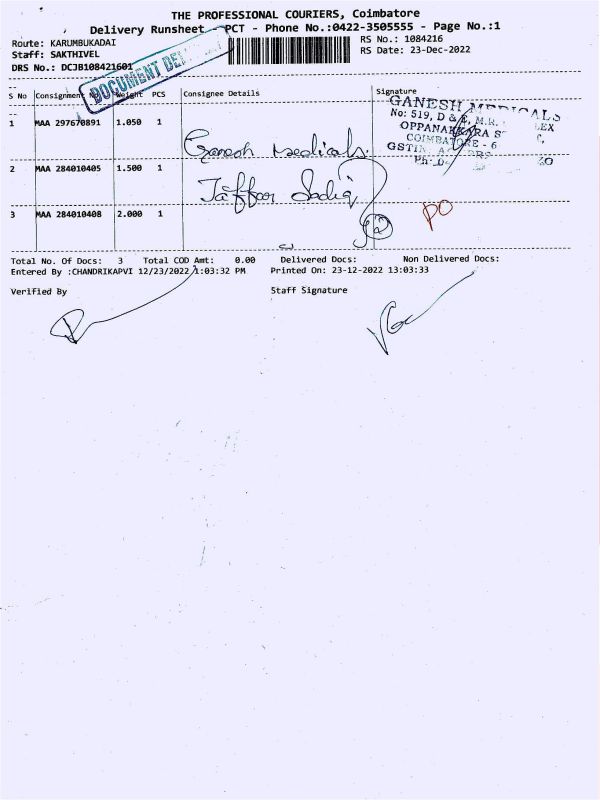 THE PROFESSIONAL COURIERS, Coimbatore
Delivery Runsheet - PCT - Phone No.:0422-3505555 - Page No.:1
Route: KARUMBUKADAI
RS No.: 1084216
Staff: SAKTHIVEL
RS Date: 23-Dec-2022
DRS No.: DCJB108421601
DOCUMENT
S No Consignment No Weight PCS Consignee Details Signature
1 MAA 297670891 1.050 1 Ganesh Medicals.
GANESH MEDICALS
No: 519, D & E, M.R.
COIMBATORE - 6
2 MAA 284010405 1.500 1 Jaffar Sadiq
3 MAA 284010408 2.000 1
PO
Total No. Of Docs: 3 Total COD Amt: 0.00 Delivered Docs: Non Delivered Docs:
Entered By :CHANDRIKAPVI 12/23/2022 1:03:32 PM Printed On: 23-12-2022 13:03:33
Verified By Staff Signature